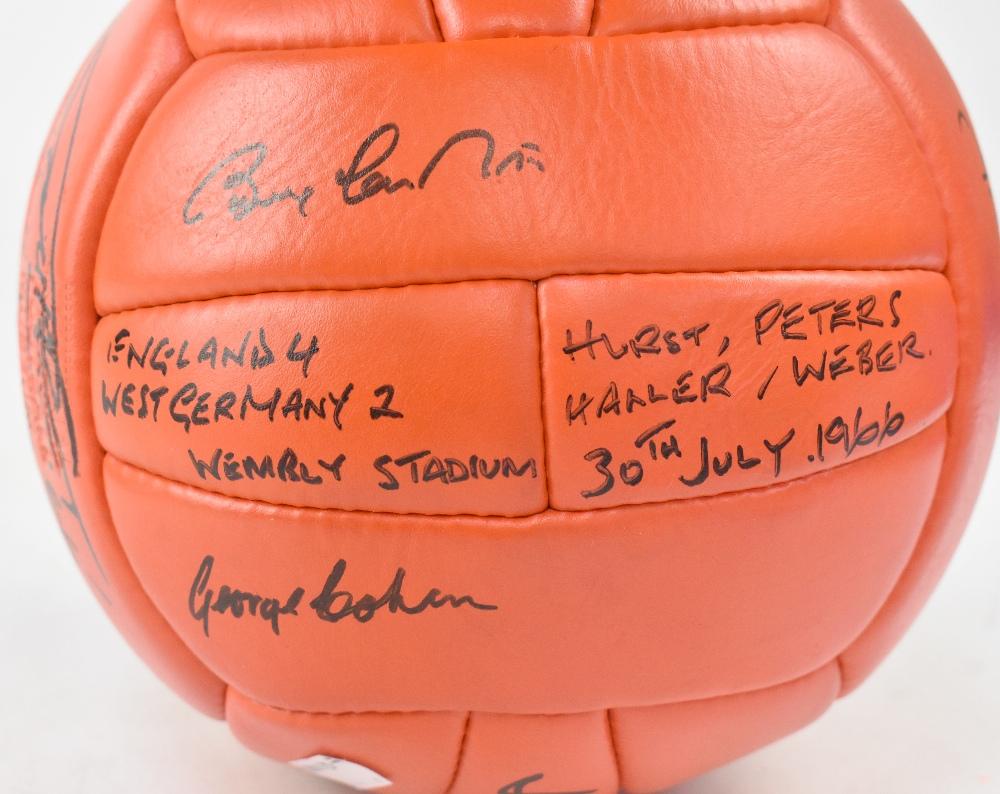 ENGLAND 4
WEST GERMANY 2
WEMBLY STADIUM
HURST, PETERS
HALLER / WEBER.
30TH JULY . 1966
George Cohen